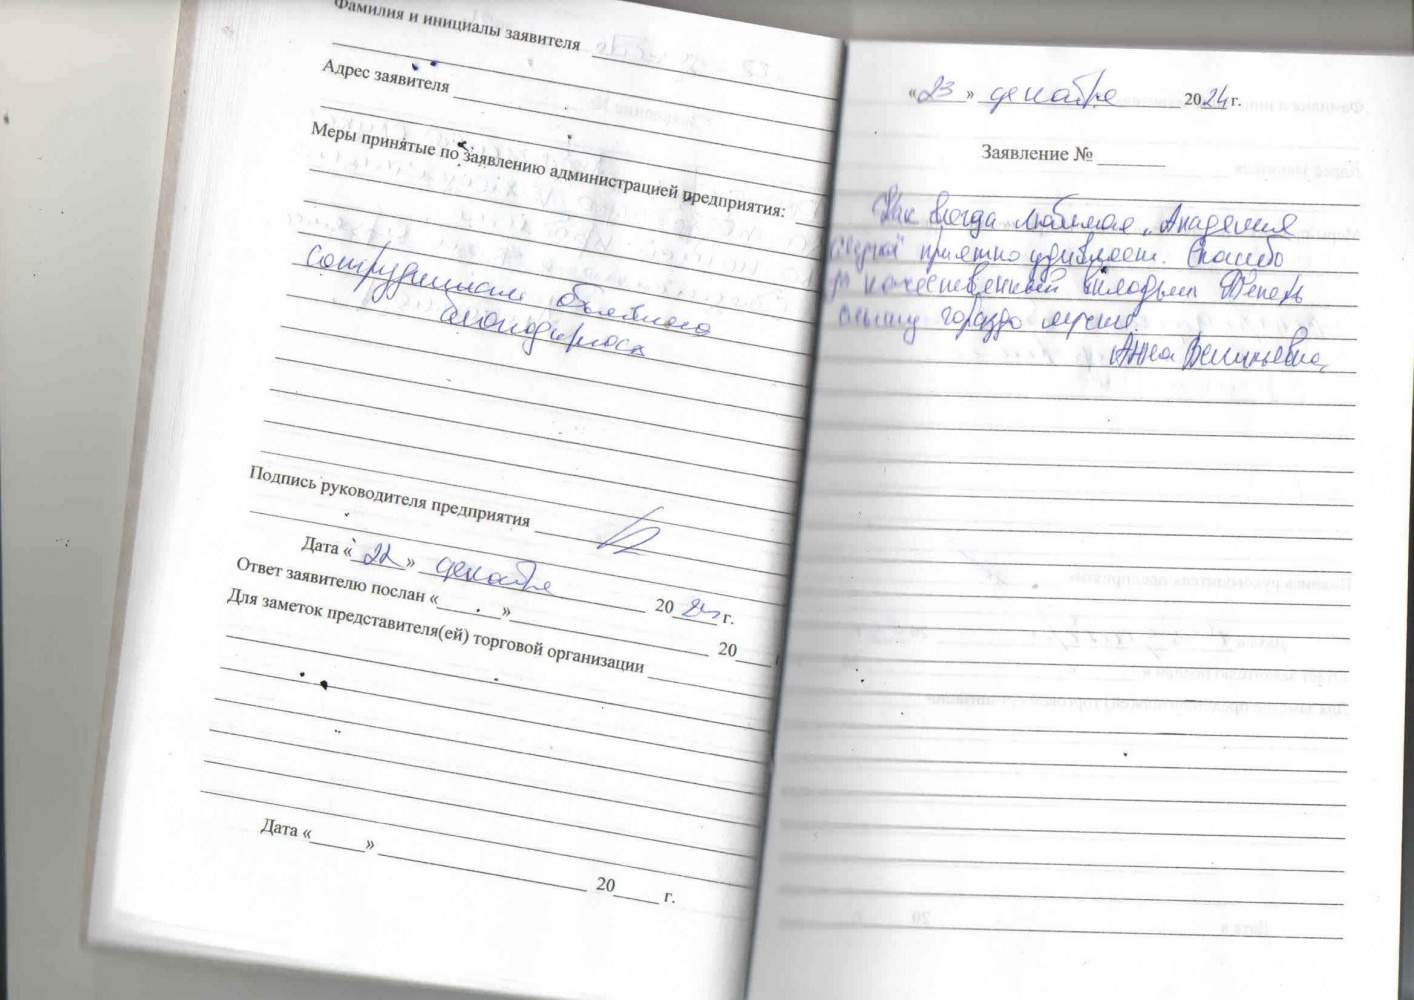 Фамилия и инициалы заявителя
Адрес заявителя
Меры принятые по заявлению администрацией предприятия:
сотрудникам объявлена
благодарность
Подпись руководителя предприятия
Дата «22» декабря 2024 г.
Ответ заявителю послан «_____» 20____ г.
Для заметок представителя(ей) торговой организации
Дата «_____» 20_____ г.
«23» декабря 2024 г.
Заявление № _______
Как всегда любимая "Академия
Слуха" приятно удивляет. Спасибо
за качественный вкладыш. Теперь
слышу гораздо лучше.
Анна